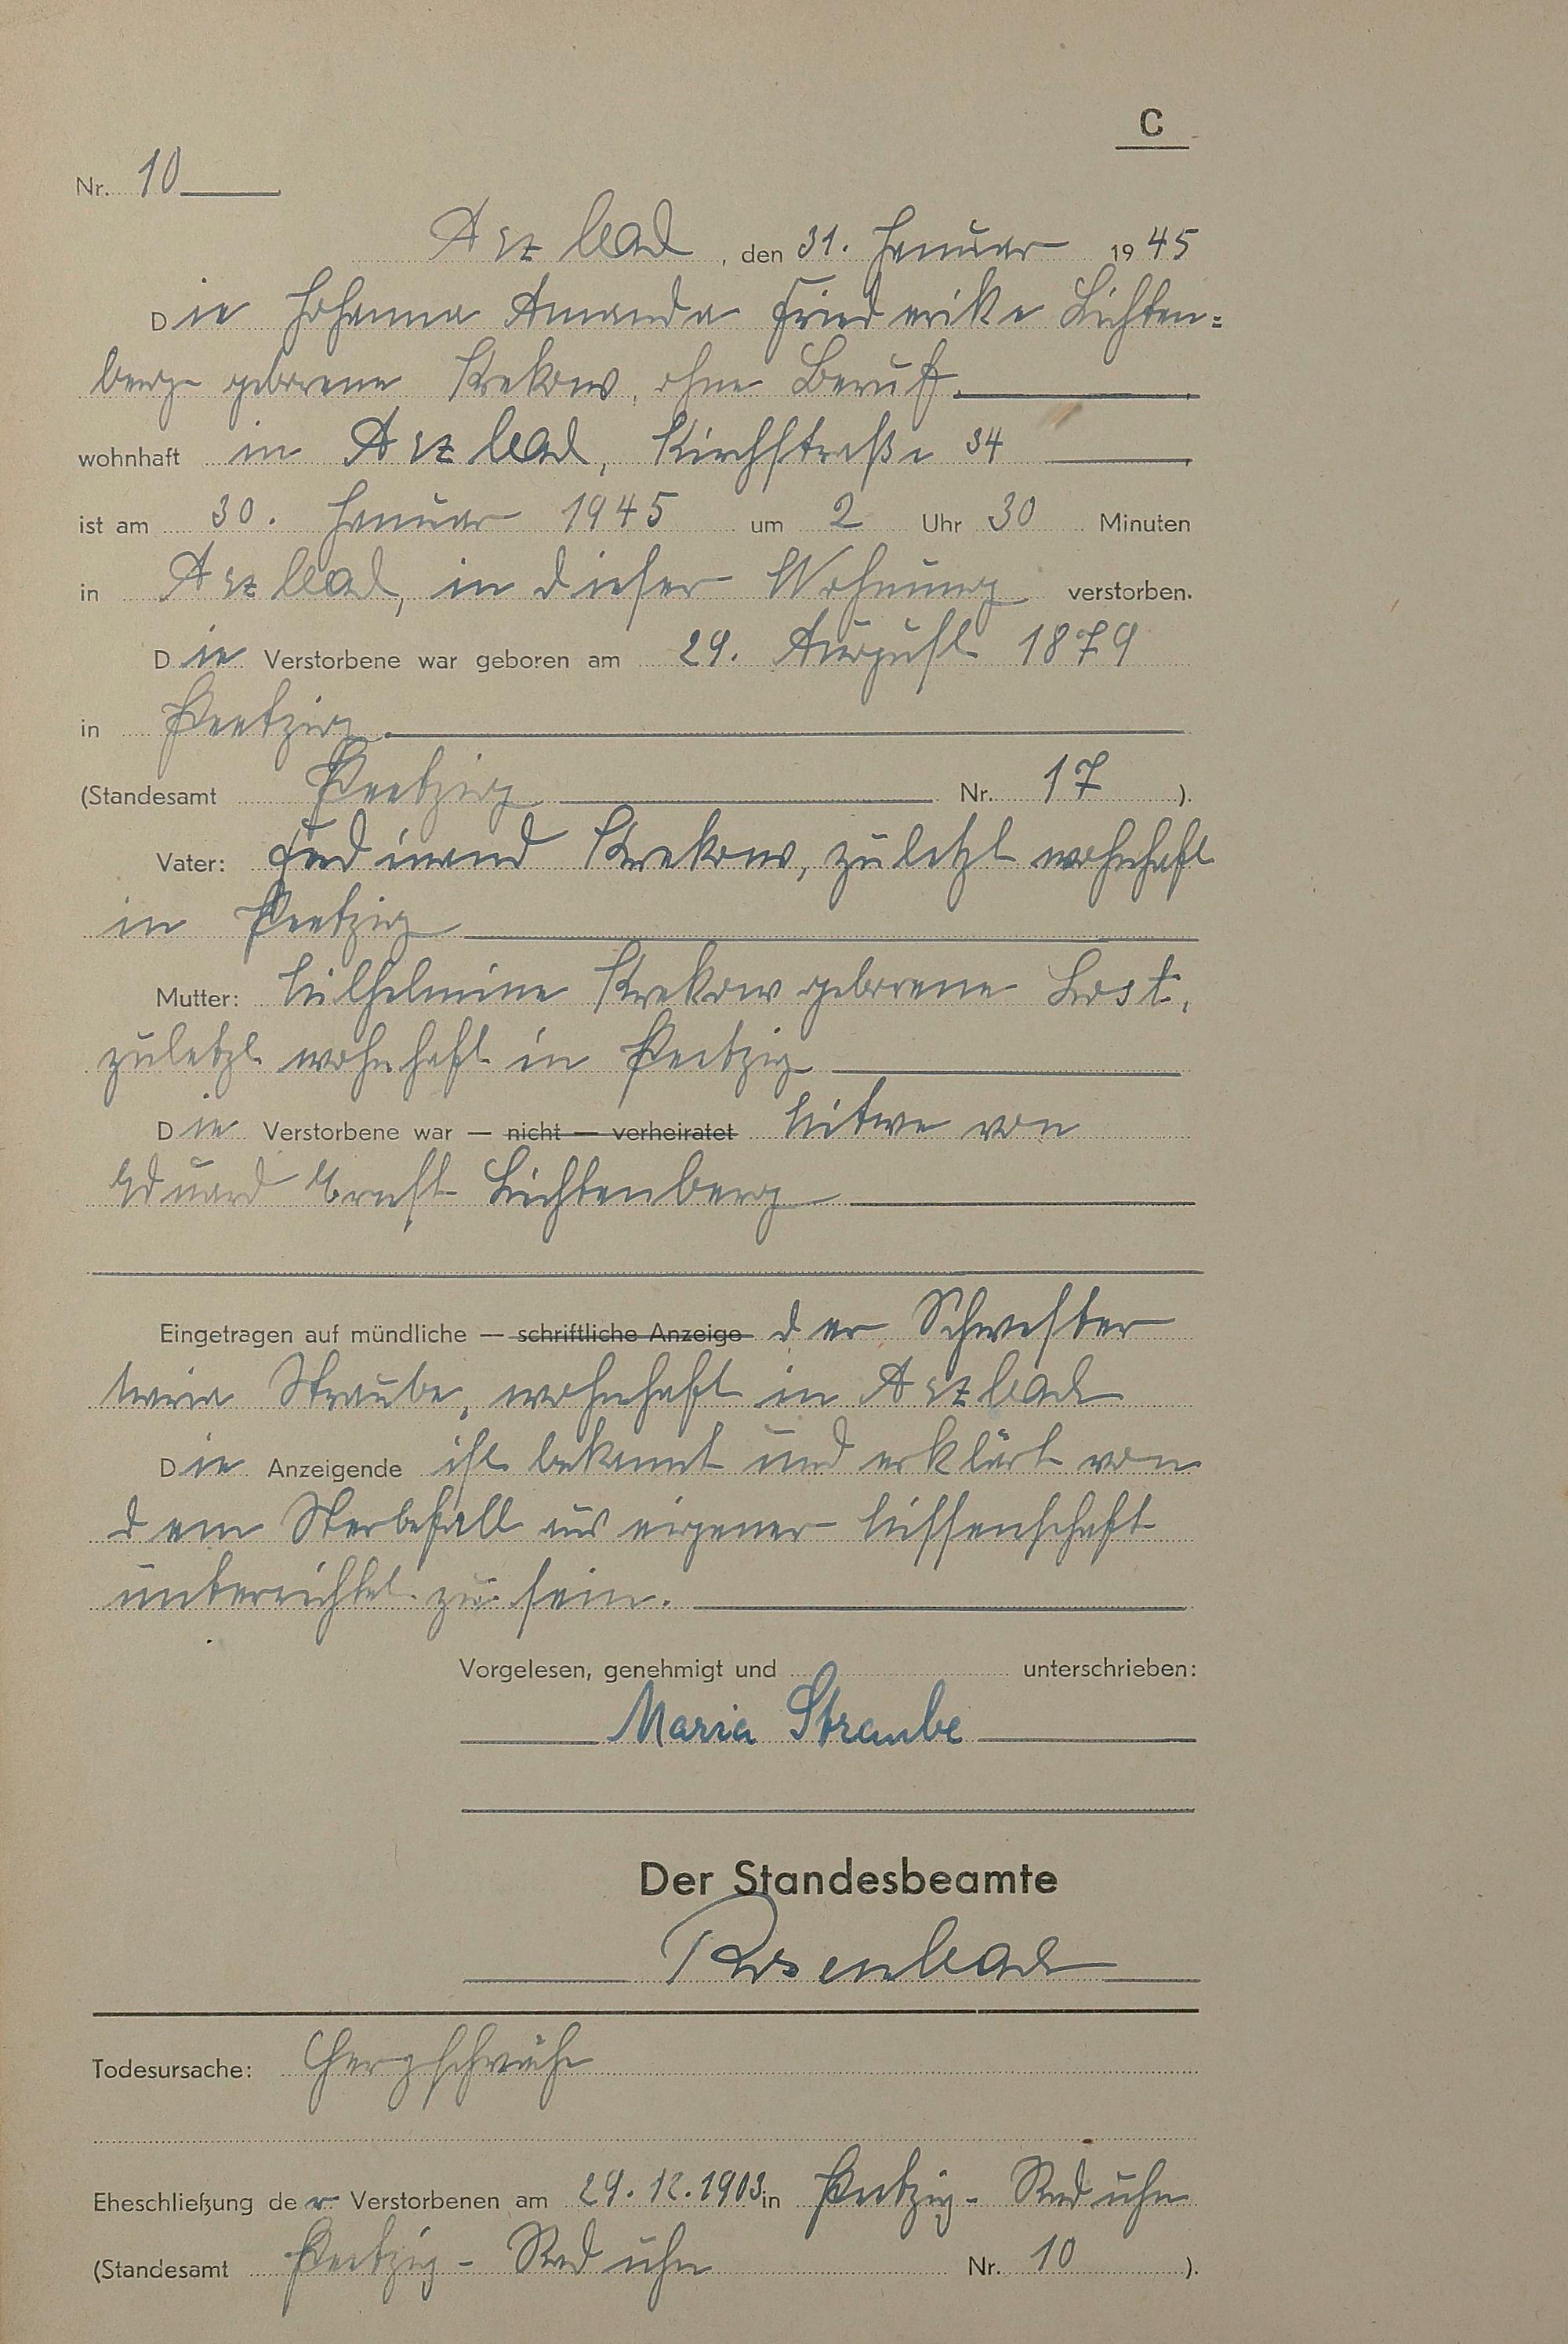 C
Nr. 10
Arzbach, den 31. Januar 1945
Die Johanna Amanda Friederike Lichten=
berg geborene Krekow, ohne Beruf
wohnhaft in Arzbach, Kirchstraße 34
ist am 30. Januar 1945 um 2 Uhr 30 Minuten
in Arzbach, in dieser Wohnung verstorben.
Die Verstorbene war geboren am 29. August 1879
in Peetzig
(Standesamt Peetzig Nr. 17).
Vater: Ferdinand Krekow, zuletzt wohnhaft
in Peetzig
Mutter: Wilhelmine Krekow geborene
zuletzt wohnhaft in Peetzig
Die Verstorbene war — nicht — verheiratet Witwe von
Eduard Ernst Lichtenberg
Eingetragen auf mündliche — schriftliche Anzeige der Schwester
Maria Straube, wohnhaft in Arzbach
Die Anzeigende ist bekannt und erklärt von
dem Sterbefall aus eigener Wissenschaft
unterrichtet zu sein.
Vorgelesen, genehmigt und unterschrieben:
Maria Straube
Der Standesbeamte
Rosenbach
Todesursache: Herzschwäche
Eheschließung der Verstorbenen am 29.12.1903 in Peetzig-Raduhn
(Standesamt Peetzig-Raduhn Nr. 10).